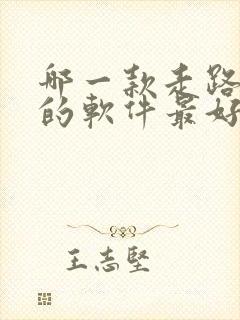 哪一款走路
的軟件最好
王志堅